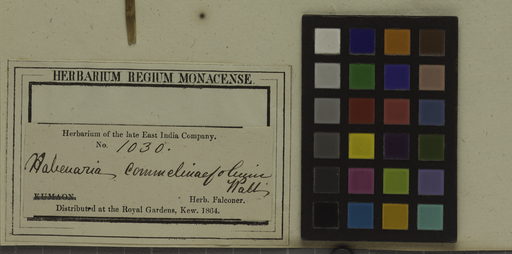 HERBARIUM REGIUM MONACENSE.
Herbarium of the late East India Company.
No. 1030.
Habenaria commelinaefolia
Wall.
KUMAON.
Herb. Falconer.
Distributed at the Royal Gardens, Kew. 1864.